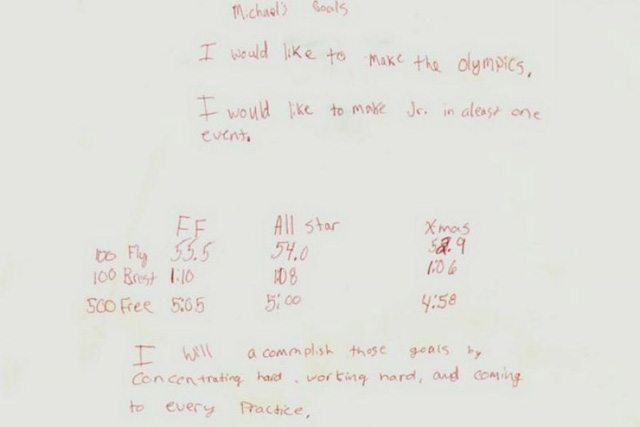 Michael's Goals
I would like to make the olympics.
I would like to make Jr. in aleast one
event.
FF All Star Xmas
100 Fly 55.5 54.0 52.9
100 Brest 1:10 1:08 1:06
500 Free 5:05 5:00 4:58
I will acommplish those goals by
concentrating hard, working hard, and coming
to every Practice.